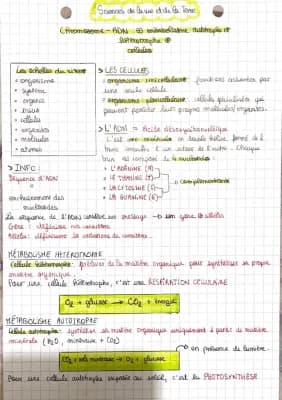 Sciences de la vie et de la Terre
Chromosome - ADN métabolisme autotrophe et
hétérotrophe
cellules
Les échelles du vivant
• organisme
• système
• organe
• tissus
• cellule
• organites
• molécules
• atomes
> LES CELLULES
organisme unicellulaire: fonctions assurées par
une seule cellule
organisme pluricellulaire: cellules spécialisées qui
peuvent posséder leur propres molécules/organites.
> L'ADN = Acide désoxyribonucléique
C'est une molécule en double hélice, formé de 2
brins enroulés l'un autour de l'autre. Chaque
brin est composé de 4 nucléotides:
• L'ADÉNINE (A)
• LE THYMINE (T)
• LA CYTOSINE (C)
• LA GUANINE (G)
complémentaire
> INFO:
Séquence d'ADN
=
enchaînement des
nucléotides
La séquence de l'ADN constitue un message → un gène allèles
Gène: détermine un caractère
Allèle: détermine la variation du caractère.
MÉTABOLISME HÉTÉROTROPHE
Cellule hétérotrophe: prélève de la matière organique pour synthétiser sa propre
matière organique.
Pour une cellule hétérotrophe, c'est la RESPIRATION CELLULAIRE
O2 + glucose → CO2 + énergie
MÉTABOLISME AUTOTROPHE
Cellule autotrophe: synthétise sa matière organique uniquement à partir de matière
minérale (H2O, minéraux + CO2)
en présence de lumière.
CO2 + sels minéraux → O2 + glucose
Pour une cellule autotrophe exposée au soleil, c'est la PHOTOSYNTHÈSE